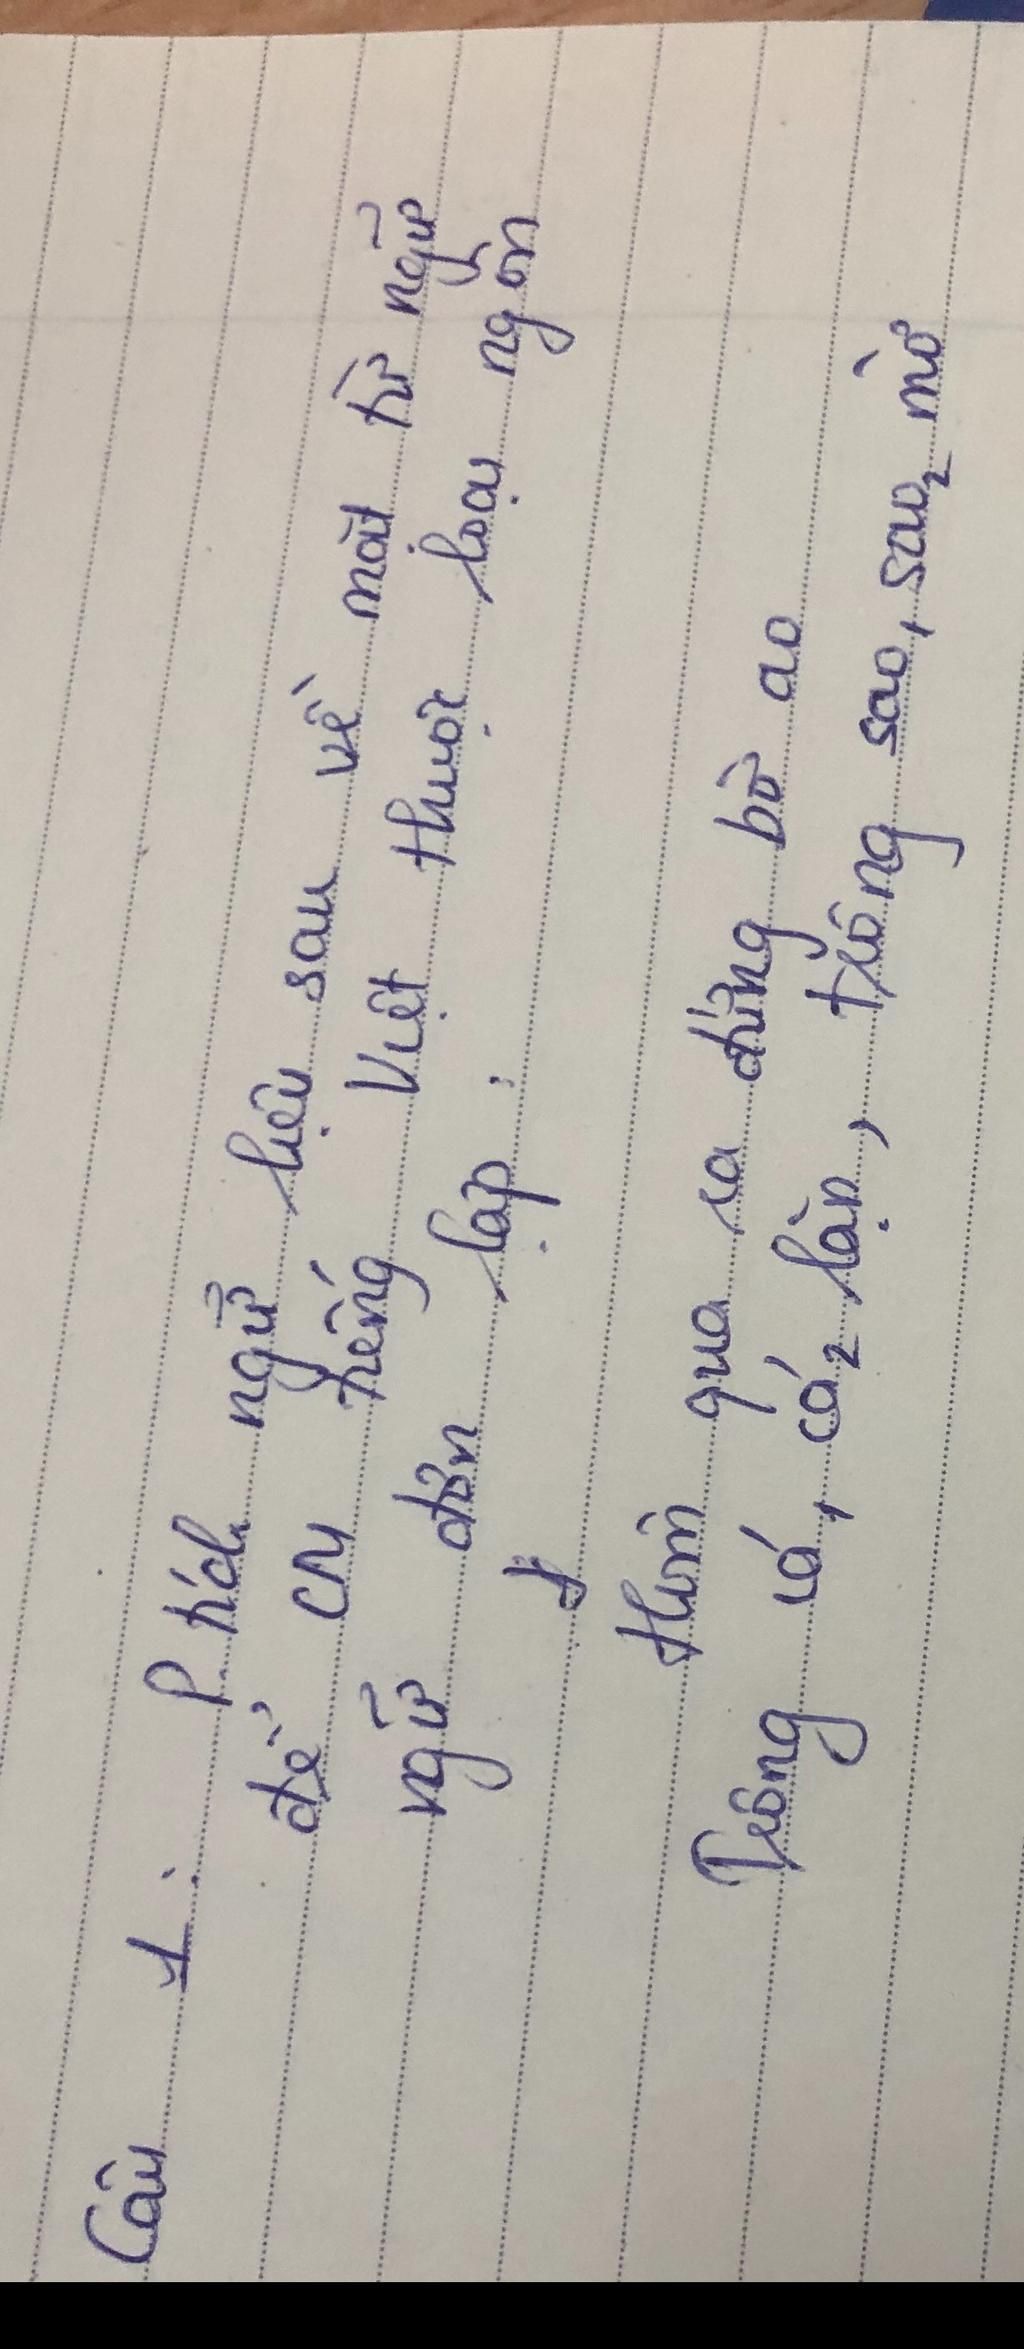 Câu 1: P. tích ngữ liệu sau về mặt từ ngữ
để CM tiếng Việt thuộc loại ngôn
ngữ đơn lập:
Hum qua ra đứng bờ ao
Trông cá, cá₂ lặn, trông sao, sao₂ mờ